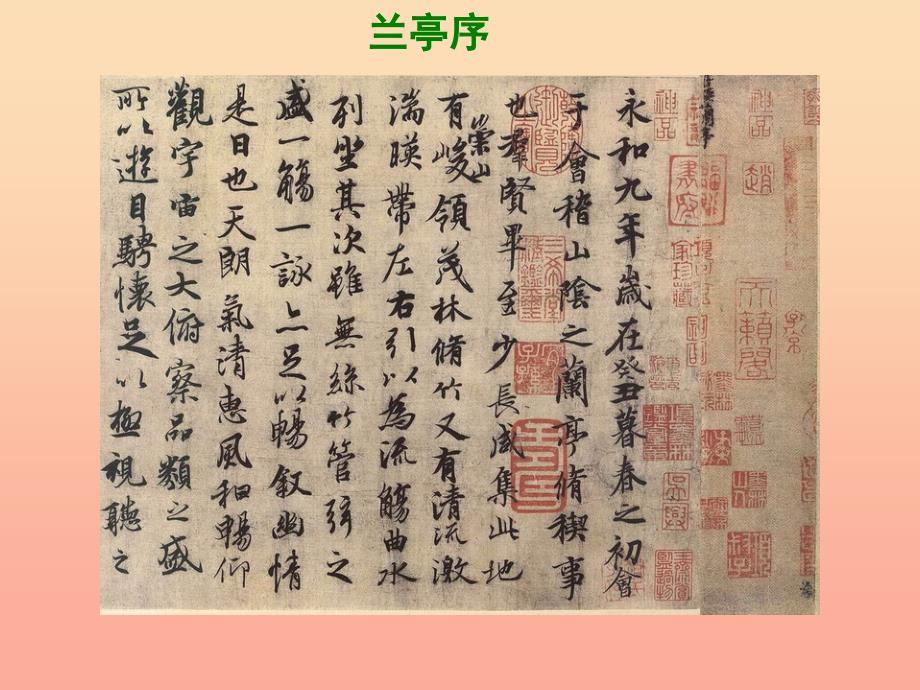 兰亭序
神品
趙
天籟閣
神品
永和九年歲在癸丑暮春之初會
于會稽山陰之蘭亭脩禊事
也羣賢畢至少長咸集此地
有崇山峻領茂林脩竹又有清流激
湍暎帶左右引以為流觴曲水
列坐其次雖無絲竹管弦之
盛一觴一詠亦足以暢敘幽情
是日也天朗氣清惠風和暢仰
觀宇宙之大俯察品類之盛
所以遊目騁懷足以極視聽之